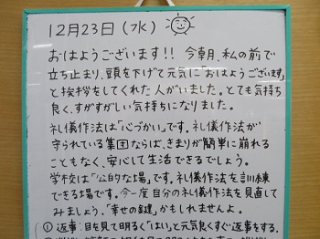 12月23日(水)
おはようございます!! 今朝、私の前で
立ち止まり、頭を下げて元気に「おはようございます」
と挨拶をしてくれた人がいました。とても気持ち
良く、すがすがしい気持ちになりました。
礼儀作法は「心づかい」です。礼儀作法が
守られている集団ならば、きまりが簡単に崩れる
こともなく、安心して生活できるでしょう。
学校は「公的な場」です。礼儀作法を訓練
できる場です。今一度自分の礼儀作法を見直して
みましょう。「幸せの鍵」かもしれませんよ。
① 返事:目を見て明るく「はい」と元気良くすぐ返事をする。